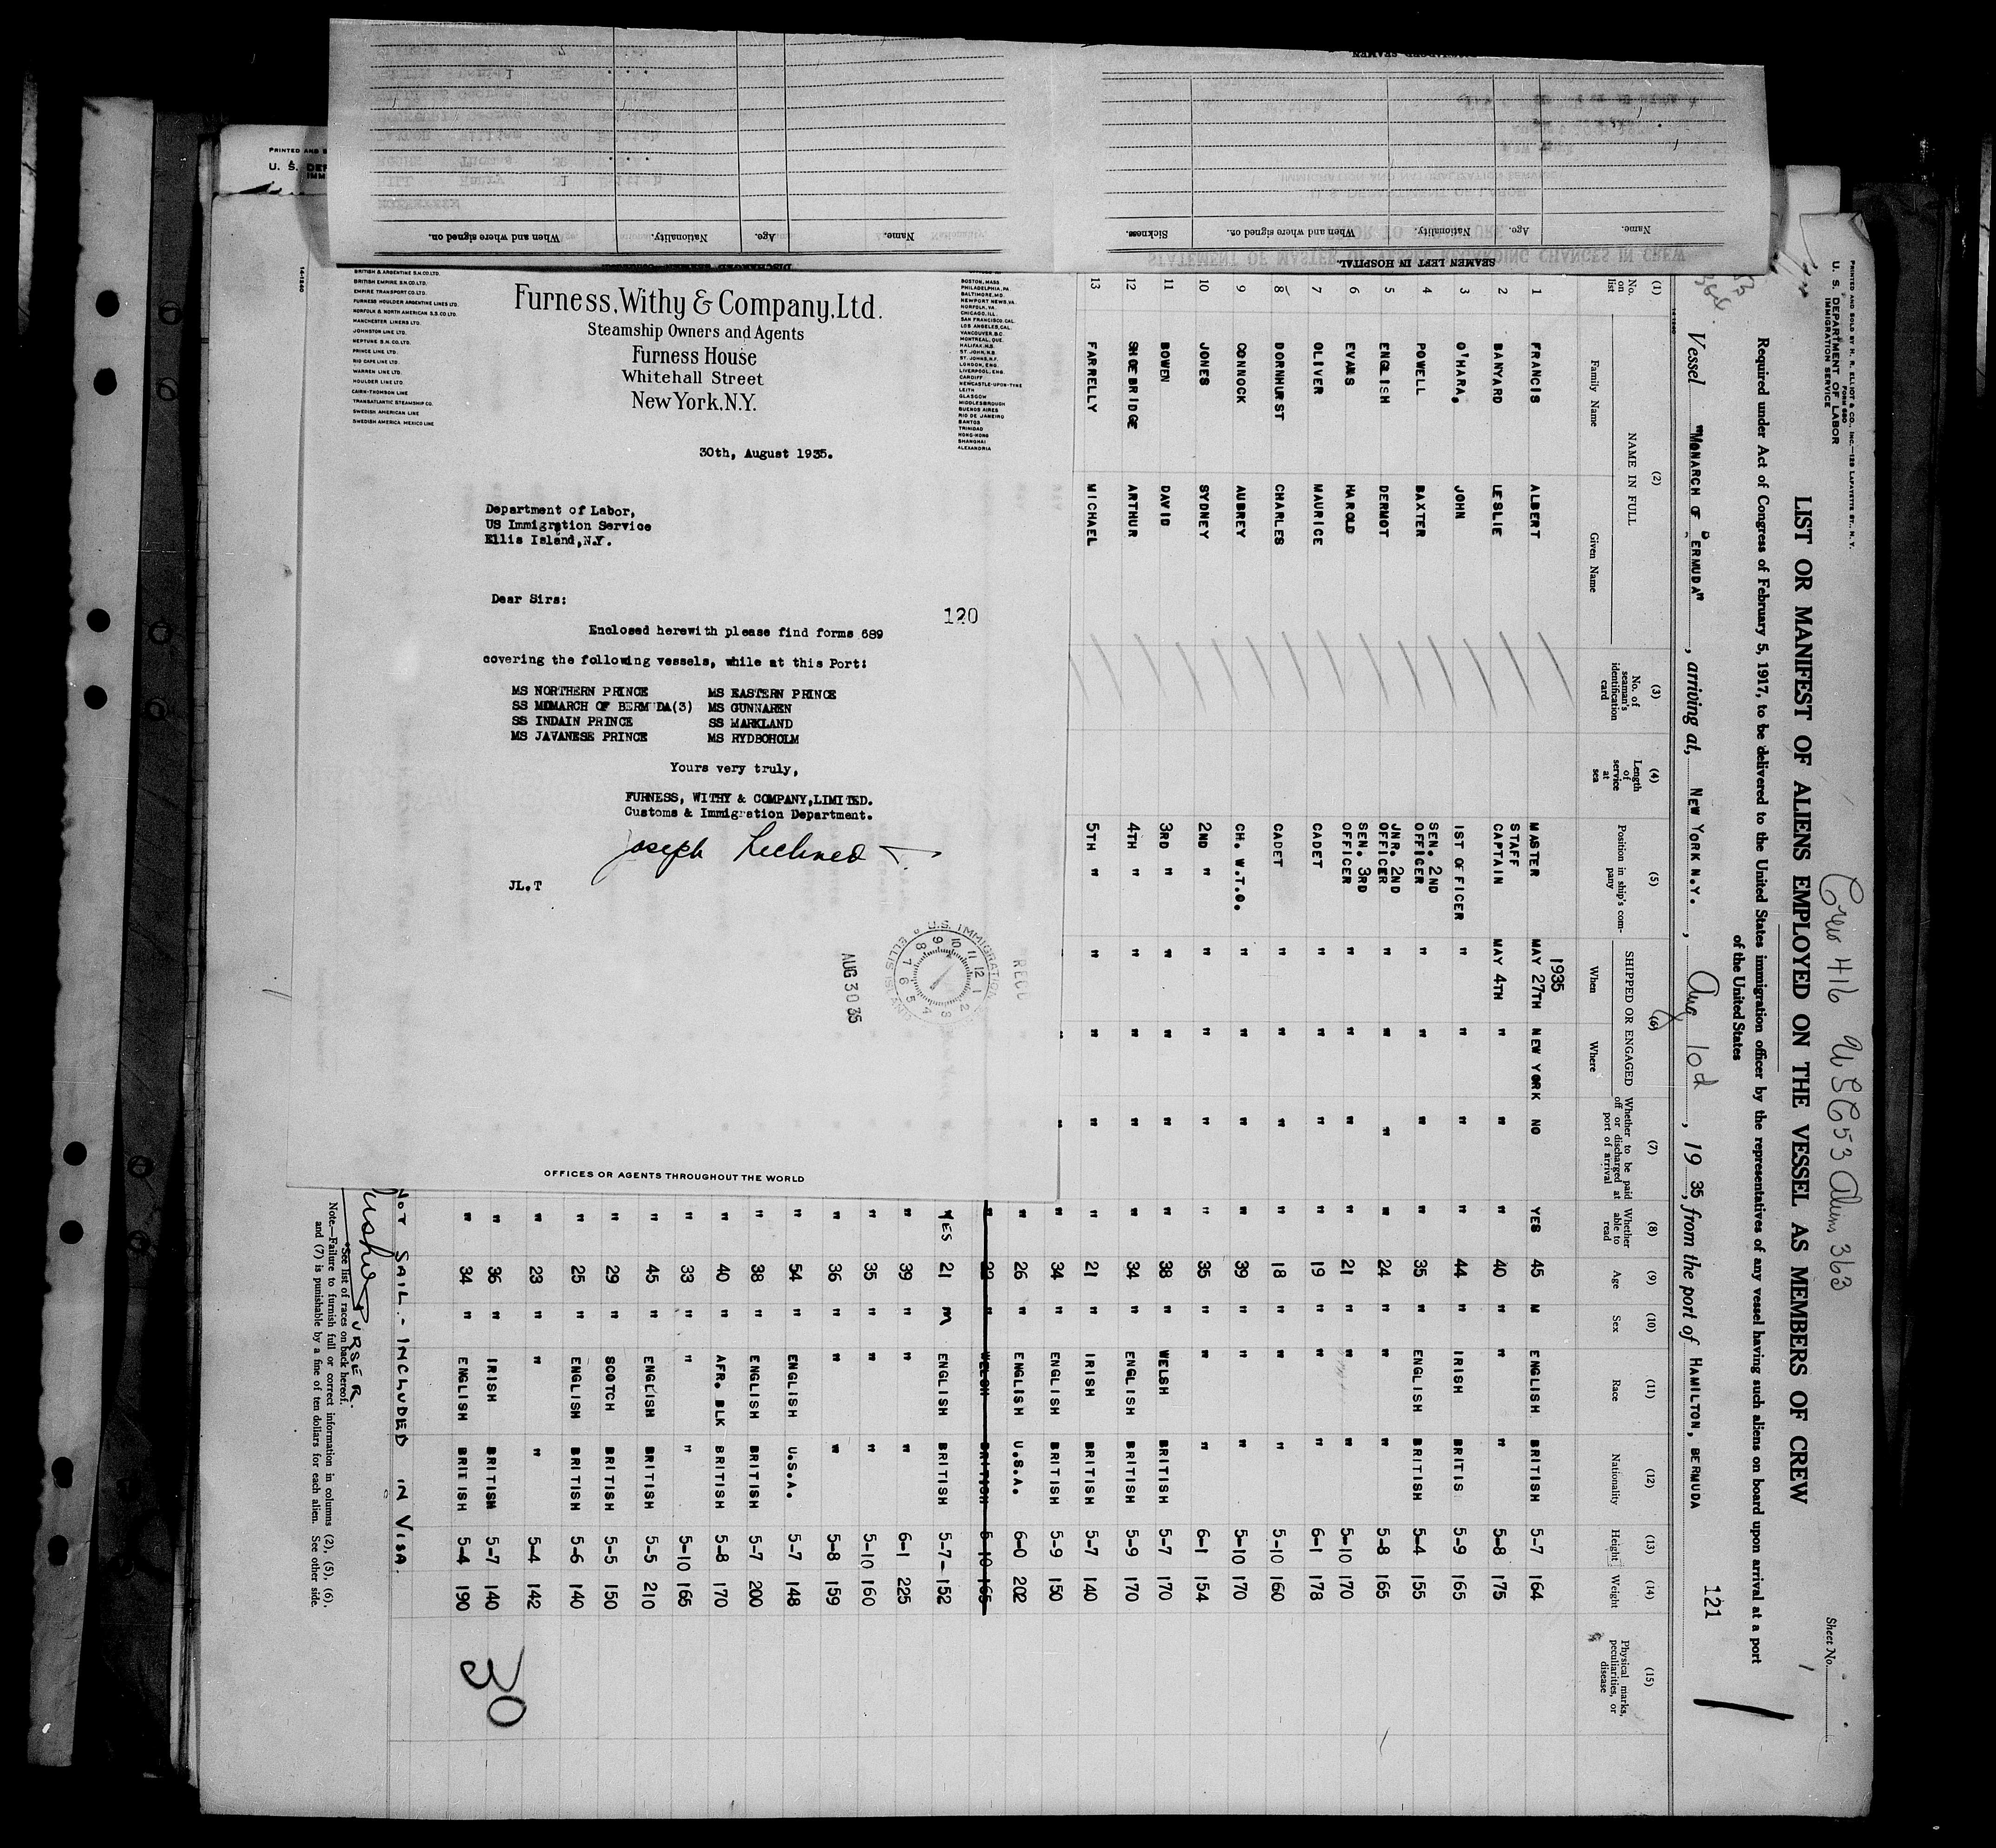 Furness, Withy & Company, Ltd.
Steamship Owners and Agents
Furness House
Whitehall Street
New York, N.Y.
BRITISH & ARGENTINE S.N.CO.LTD.
BRITISH EMPIRE S.N.CO.LTD.
EMPIRE TRANSPORT CO.LTD.
FURNESS HOULDER ARGENTINE LINES LTD.
NORFOLK & NORTH AMERICAN S.S.CO.LTD.
MANCHESTER LINERS LTD.
JOHNSTON LINE LTD.
NEPTUNE S.N.CO.LTD.
PRINCE LINE LTD.
RIO CAPE LINE LTD.
WARREN LINE LTD.
HOULDER LINE LTD.
CAIRN-THOMSON LINE
TRANSATLANTIC STEAMSHIP CO.
SWEDISH AMERICAN LINE
SWEDISH AMERICA MEXICO LINE
BOSTON, MASS.
PHILADELPHIA, PA.
BALTIMORE, MD.
NEWPORT NEWS, VA.
NORFOLK, VA.
CHICAGO, ILL.
SAN FRANCISCO, CAL.
LOS ANGELES, CAL.
VANCOUVER, B.C.
MONTREAL, QUE.
HALIFAX, N.S.
ST. JOHN, N.B.
ST. JOHNS, N.F.
LONDON, ENG.
LIVERPOOL, ENG.
CARDIFF
NEWCASTLE-UPON-TYNE
LEITH
GLASGOW
MIDDLESBROUGH
BUENOS AIRES
RIO DE JANEIRO
SANTOS
TRINIDAD
HONG-KONG
SHANGHAI
ALEXANDRIA
30th, August 1935.
Department of Labor,
US Immigration Service
Ellis Island,N.Y.
Dear Sirs:
120
Enclosed herewith please find forms 689
covering the following vessels, while at this Port:
MS NORTHERN PRINCE MS EASTERN PRINCE
SS MOMARCH OF BERMUDA(3) MS GUNNAREN
SS INDAIN PRINCE SS MARKLAND
MS JAVANESE PRINCE MS RYDBOHOLM
Yours very truly,
FURNESS, WITHY & COMPANY,LIMITED.
Customs & Immigration Department.
Joseph
JL.T
U.S. IMMIGRATION
ELLIS ISLAND
RECD
AUG 30 35
OFFICES OR AGENTS THROUGHOUT THE WORLD
PRINTED AND SOLD BY H. R. ELLIOT & CO., INC.—129 LAFAYETTE ST., N. Y.
FORM 680
U. S. DEPARTMENT OF LABOR
IMMIGRATION SERVICE
Crew 416 USC 53 Aliens 363
Sheet No. 1
LIST OR MANIFEST OF ALIENS EMPLOYED ON THE VESSEL AS MEMBERS OF CREW
Required under Act of Congress of February 5, 1917, to be delivered to the United States immigration officer by the representatives of any vessel having such aliens on board upon arrival at a port
of the United States
121
Vessel "MONARCH OF BERMUDA", arriving at, NEW YORK N.Y., Aug 10th, 19 35, from the port of HAMILTON, BERMUDA
(1) (2) (3) (4) (5) (6) (7) (8) (9) (10) (11) (12) (13) (14) (15)
No. on list NAME IN FULL Family Name Given Name No. of seaman's identification card Length of service at sea Position in ship's company SHIPPED OR ENGAGED When Where Whether to be paid off or discharged at port of arrival Whether able to read Age Sex Race Nationality Height Weight Physical marks, peculiarities, or disease
1935
1 FRANCIS ALBERT MASTER MAY 27TH NEW YORK NO YES 45 M ENGLISH BRITISH 5-7 164
2 BANYARD LESLIE STAFF CAPTAIN MAY 4TH " " " 40 " " " 5-8 175
3 O'HARA, JOHN 1ST OFFICER " " " " 44 " IRISH BRITIS 5-9 165
4 POWELL BAXTER SEN. 2ND OFFICER " " " " 35 " ENGLISH BRITISH 5-4 155
5 ENGLISH DERMOT JNR. 2ND OFFICER " " " " 24 " " " 5-8 165
6 EVANS HAROLD SEN. 3RD OFFICER " " " " 21 " " " 5-10 170
7 OLIVER MAURICE CADET " " " " 19 " " " 6-1 178
8 DORNHURST CHARLES CADET " " " " 18 " " " 5-10 160
9 CONNOCK AUBREY CH. W.T.O. " " " " 39 " " " 5-10 170
10 JONES SYDNEY 2ND " " " " " 35 " " " 6-1 154
11 BOWEN DAVID 3RD " " " " " 38 " WELSH BRITISH 5-7 170
12 SHOEBRIDGE ARTHUR 4TH " " " " " 34 " ENGLISH BRITISH 5-9 170
13 FARRELLY MICHAEL 5TH " " " " " 21 " IRISH BRITISH 5-7 140
34 " ENGLISH BRITISH 5-9 150
" 26 " ENGLISH U.S.A. 6-0 202
" " WELSH BRITISH 5-10 165
YES 21 M ENGLISH BRITISH 5-7-152
" 39 " " " 6-1 225
" 35 " " " 5-10 160
" 36 " " " 5-8 159
" 54 " ENGLISH U.S.A. 5-7 148
" 38 " ENGLISH BRITISH 5-7 200
" 40 " AFR. BLK BRITISH 5-8 170
" 33 " " " 5-10 165
" 45 " ENGLISH BRITISH 5-5 210
" 29 " SCOTCH BRITISH 5-5 150
" 25 " ENGLISH BRITISH 5-6 140
" 23 " " " 5-4 142
" 36 " IRISH BRITISH 5-7 140
" 34 " ENGLISH BRITISH 5-4 190
30
NOT SAIL.- INCLUDED IN VISA.
PURSER.
*See list of races on back hereof.
Note.—Failure to furnish full or correct information in columns (2), (5), (6), and (7) is punishable by a fine of ten dollars for each alien. See other side.
SEAMEN LEFT IN HOSPITAL.
Name. Age. Nationality. When and where signed on. Sickness.
DISCHARGED SEAMEN
Name. Age. Nationality. When and where signed on.
STATEMENT OF MASTER OF VESSEL REGARDING CHANGES IN CREW